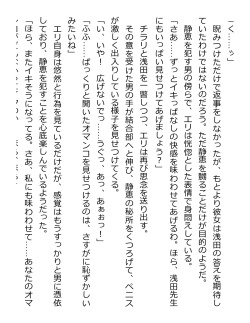 睨みつけただけで返事をしなかったが、もとより彼女は浅田の答えを期待し
ていたわけではないのだろう。ただ静恵を嬲ることだけが目的のようだ。
静恵を犯す男の傍らで、エリは恍惚とした表情で身悶えしている。
「さあ……ずっとイキっぱなしの快感を味わわせてあげるわ。ほら、浅田先生
にもいっぱい見せつけてあげましょう？」
チラリと浅田を一瞥しつつ、エリは再び思念を送り出す。
その意を受けた男の手が結合部へと伸び、静恵の秘所をくつろげて、ペニス
が激しく出入りしている様子を見せつけてくる。
「い、いや！　広げないでっ……うぐっ、あっ、あぁぁっ！」
「ふふ……ぱっくりと開いたオマンコを見せつけるのは、さすがに恥ずかしい
みたいね」
エリ自身は悠然と行為を見ているだけだが、感覚はもうすっかりと男に憑依
しており、静恵を犯すことを心底楽しんでいるようだった。
「ほら、またイキそうになってる。さあ、私にも味わわせて……あなたのオマ